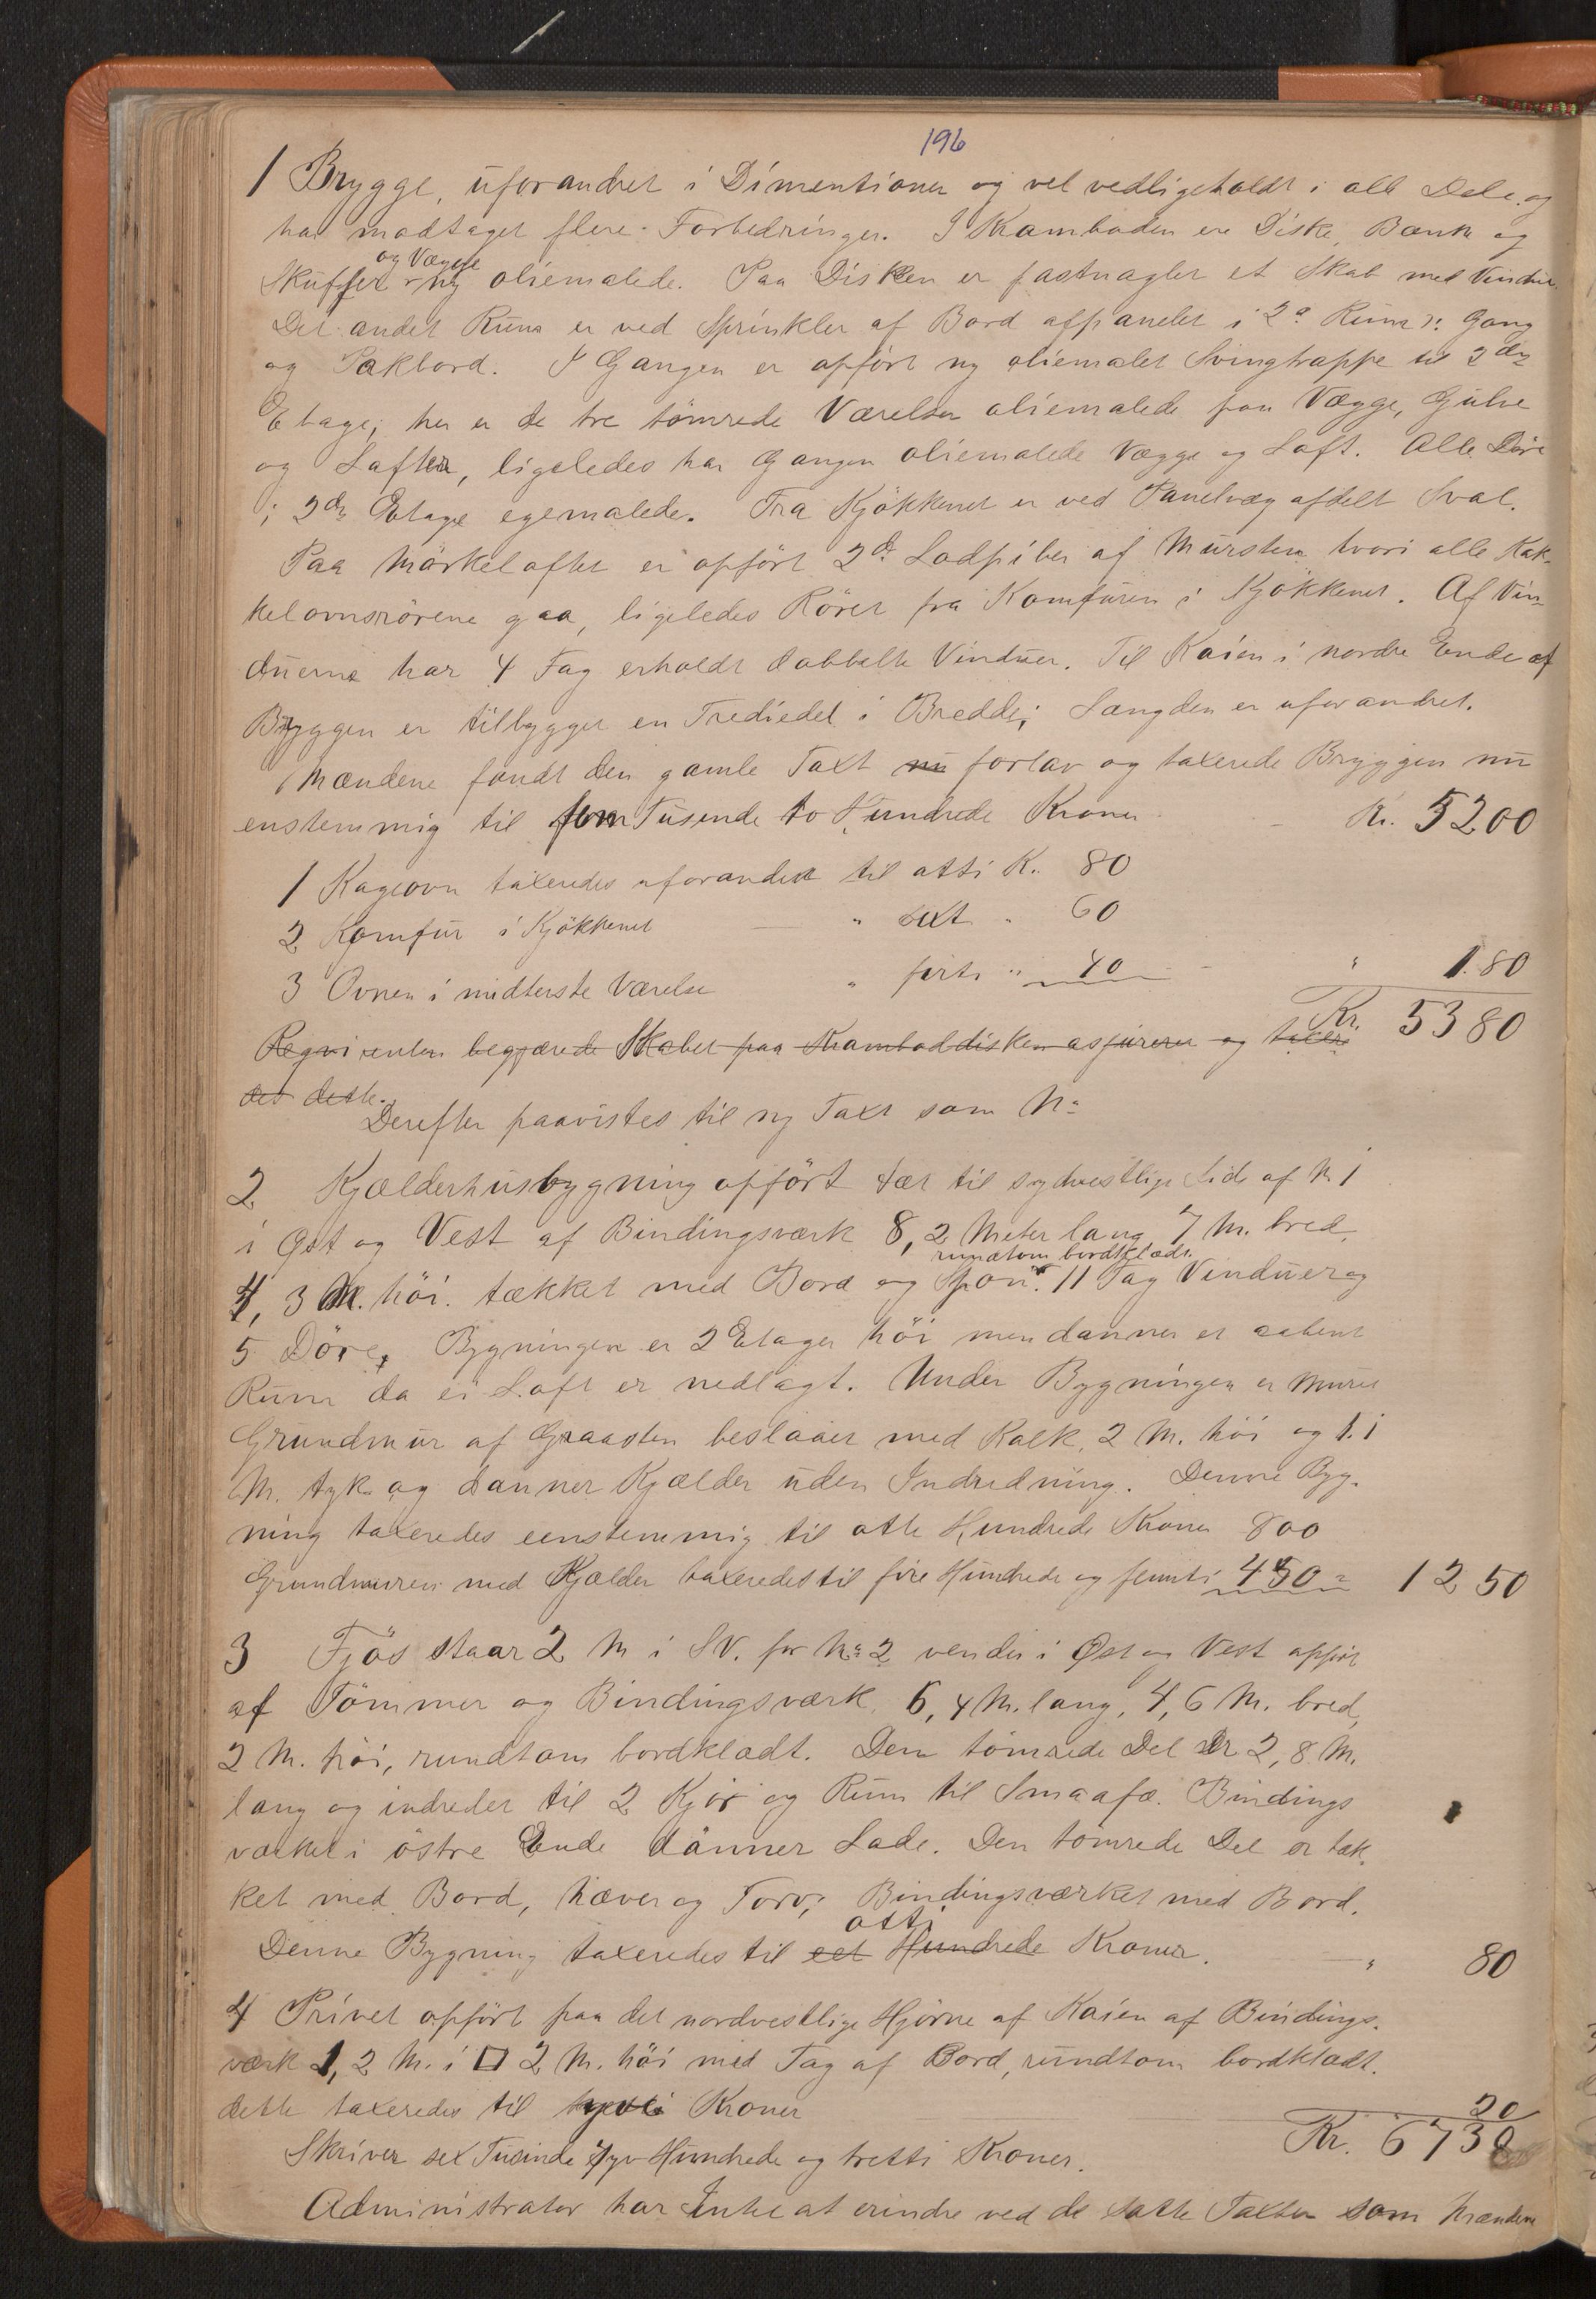 196
1 Brygge, uforandret i Dimentioner og vel vedligeholdt i alle Dele og
har modtaget flere Forbedringer. I Kramboden ere Diske, Bænk og
og Vægge
Skuffer ny oliemalede. Paa Disken er fastnaglet et Skab med Vinduer.
Det andet Rum er ved Sprinkler af Bord afpanelet i 2de Rum ɔ: Gang
og Pakbord. I Gangen er opført ny oliemalet Svingtrappe til 2den
Etage; her er de tre tömrede Værelser oliemalede paa Vægge, Gulve
og Lofter, ligeledes har Gangen oliemalede Vægge og Loft. Alle Döre
i 2den Etage egemalede. Fra Kjökkenet er ved Panelvæg afdelt Sval.
Paa Mörkeloftet er opfört 2de Lodpiber af Mursten hvori alle Kak-
kelovnsrörene gaa, ligeledes Röret fra Komfuren i Kjökkenet. Af Vin-
duerne har 4 Fag erholdt dobbelte Vinduer. Til Kaien i nordre Ende af
Bryggen er tilbygget en Trediedel i Bredde; Længden er uforandret.
Mændene fandt den gamle Taxt nu forlav og taxerede Bryggen nu
enstemmig til fem Tusende to Hundrede Kroner Kr. 5200
1 Kageovn taxeredes uforandret til otti K. 80
2 Komfur i Kjökkenet " sext " 60
3 Ovnen i midterste Værelse " firti " 40 " 180
Kr. 5380
Reqvirenten begjærede Skabet paa Kramboddisken assureret og taxere
des dette.
Derefter paavistes til ny Taxt som No
2 Kjælderhusbygning opfört tæt til sydvestlige Side af N 1
i Øst og Vest af Bindingsværk 8,2 Meter lang 7 M. bred
rundtom bordklædt.
4,3 M. höi. tækket med Bord og Spon. 11 Fag Vinduer og
5 Döre. Bygningen er 2 Etager höi men danner et aabent
Rum da ei Loft er nedlagt. Under Bygningen er muret
Grundmur af Graasten beslaaet med Kalk, 2 M. höi og 1.1
M. tyk og danner Kjælder uden Indredning. Denne Byg-
ning taxeredes eenstemmig til otte Hundrede Kroner 800
Grundmuren med Kjælder taxeredes til fire Hundrede og femti 450 = 1250
3 Fjös staar 2 M i SV. for No 2 vender i Øst og Vest opfört
af Tömmer og Bindingsværk. 6,4 M. lang, 4,6 M. bred,
2 M. höi, rundtom bordklædt. Den tömrede Del er 2,8 M.
lang og indredet til 2 Kjör og Rum til Smaafæ. Bindings
værket i östre Ende danner Lade. Den tömrede Del er tæk-
ket med Bord, Næver og Torv; Bindingsværket med Bord.
otti
Denne Bygning taxeredes til eet Hundrede Kroner. " 80
4 Privet opfört paa det nordvestlige Hjörne af Kaien af Bindings-
værk 1,2 M. i □ 2 M. höi med Tag af Bord, rundtom bordklædt.
dette taxeredes til tyve Kroner 20
Kr. 6730
Skriver sex Tusinde syv Hundrede og tretti Kroner.
Administrator har Intet at erindre ved de satte Taxter som Mændene